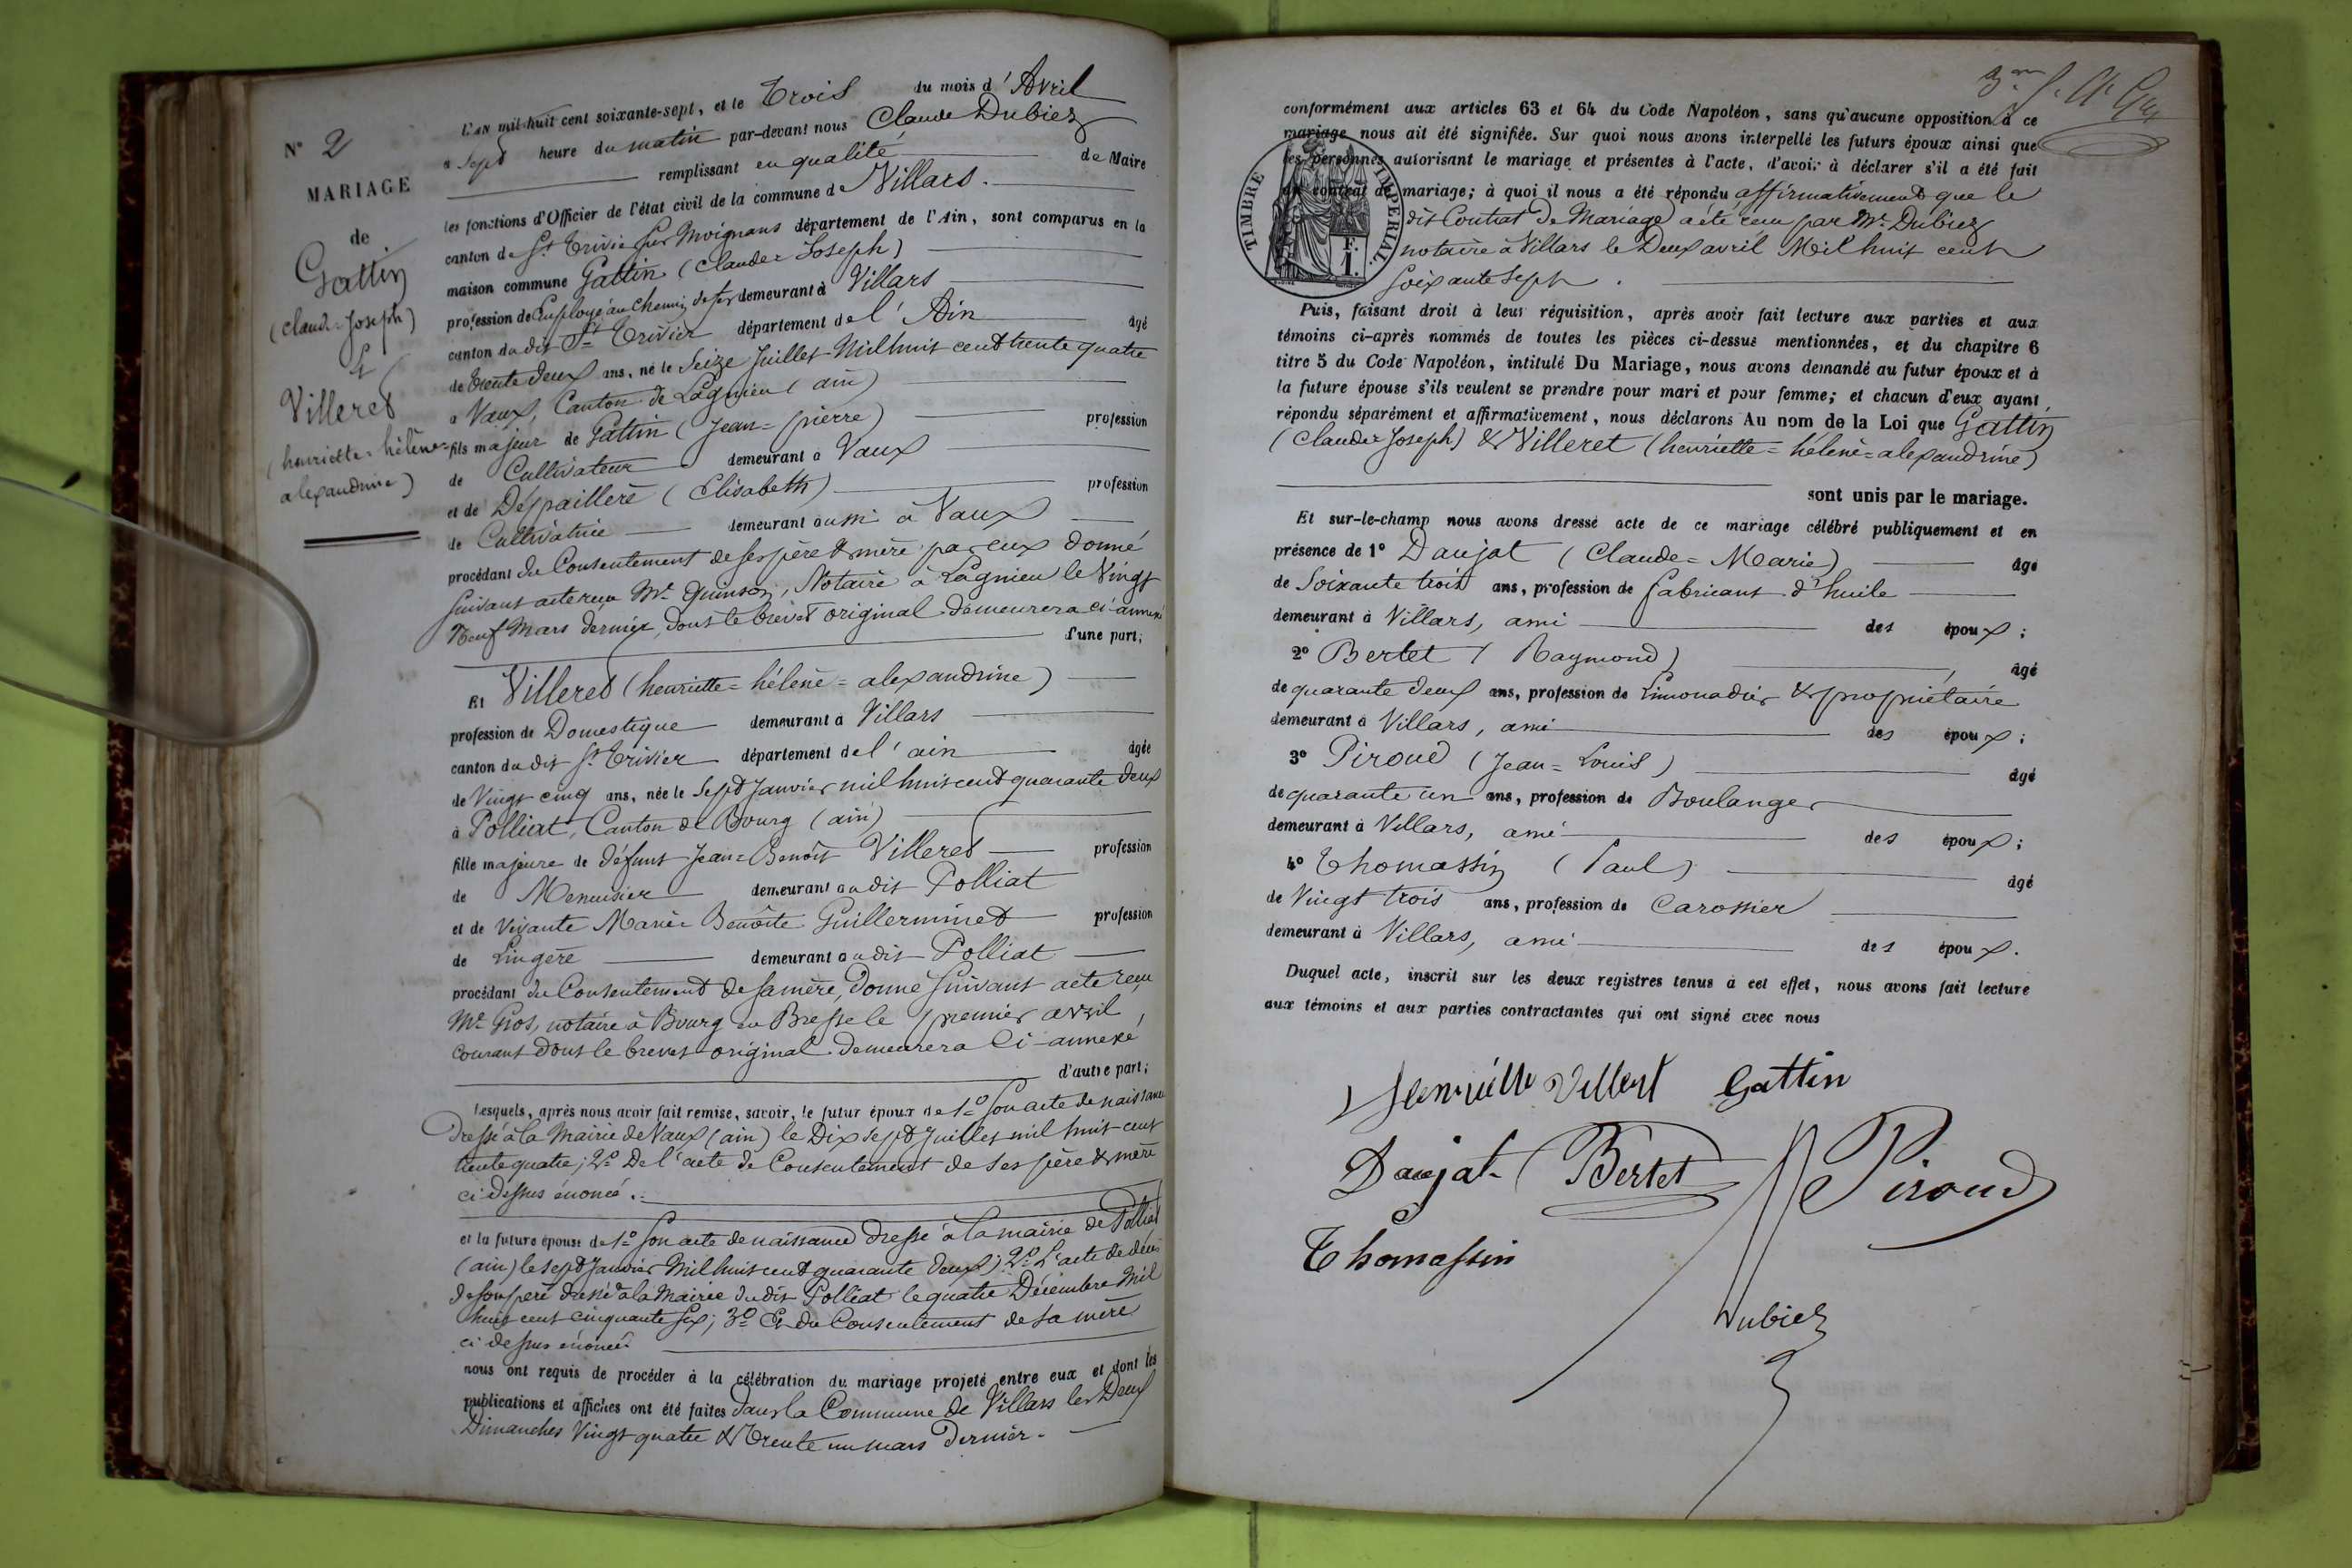 N° 2
MARIAGE
de
Gattin
(Claude=Joseph)
&
Villeret
(henriette=hélène=
alexandrine)
L'AN mil-huit cent soixante-sept, et le Trois du mois d'Avril
a Sept heure du matin par-devant nous Claude Dubiez
remplissant en qualité de Maire
les fonctions d'Officier de l'état civil de la commune de Villars.
canton de St Trivier sur Moignans département de l'Ain, sont comparus en la
maison commune Gattin (Claude=Joseph)
profession de Employé au chemin de fer demeurant à Villars
canton du dit St Trivier département de l'Ain âgé
de trente deux ans, né le Seize Juillet Mil huit cent trente quatre
a Vaux, Canton de Lagnieu (ain)
fils majeur de Gattin (Jean=pierre) profession
de Cultivateur demeurant a Vaux
et de Déspaillere (Elisabeth) profession
de Cultivatrice demeurant aussi à Vaux
procédant du Consentement de ses père & mère par eux donné
suivant acte reçu Me Quinson, Notaire à Lagnieu le Vingt
Neuf Mars dernier, dont le brevet original demeurera ci-annexé
d'une part;
Et Villeret (henriette=hélène=alexandrine)
profession de Domestique demeurant à Villars
canton du dit St Trivier département de l'ain âgée
de Vingt cinq ans, née le sept Janvier mil huit cent quarante deux
à Polliat, Canton de Bourg (ain)
fille majeure de défunt Jean=Benoît Villeret profession
de Menuisier demeurant au dit Polliat
et de Vivante Marie Benoîte Guillerminet profession
de Lingère demeurant au dit Polliat
procédant du Consentement de sa mère, donné suivant acte reçu
Me Gros, notaire à Bourg en Bresse le premier avril
courant dont le brevet original demeurera ci-annexé
d'autre part;
Lesquels, après nous avoir fait remise, savoir, le futur époux de 1° Son acte de naissance
dressé à la Mairie de Vaux (ain) le Dix sept Juillet mil huit cent
trente quatre; 2° De l'acte de Consentement de ses père & mère
ci dessus énoncé.
et la future épouse de 1° Son acte de naissance dressé à la mairie de Polliat
(ain) le sept Janvier Mil huit cent quarante deux; 2° L'acte de décès
de son père dressé à la Mairie du dit Polliat le quatre Décembre Mil
huit cent cinquante six; 3° Et du Consentement de sa mère
ci dessus énoncé
nous ont requis de procéder à la célébration du mariage projeté entre eux et dont les
publications et affiches ont été faites dans la Commune de Villars les Deux
Dimanches Vingt quatre & Trente un mars dernier.
conformément aux articles 63 et 64 du Code Napoléon, sans qu'aucune opposition à ce
mariage nous ait été signifiée. Sur quoi nous avons interpellé les futurs époux ainsi que
les personnes autorisant le mariage et présentes à l'acte, d'avoir à déclarer s'il a été fait
un contrat de mariage; à quoi il nous a été répondu affirmativement que le
dit Contrat de Mariage a été reçu par Me Dubiez
notaire à Villars le Deux avril Mil huit cent
soixante sept.
TIMBRE IMPERIAL.
Puis, faisant droit à leur réquisition, après avoir fait lecture aux parties et aux
témoins ci-après nommés de toutes les pièces ci-dessus mentionnées, et du chapitre 6
titre 5 du Code Napoléon, intitulé Du Mariage, nous avons demandé au futur époux et à
la future épouse s'ils veulent se prendre pour mari et pour femme; et chacun d'eux ayant
répondu séparément et affirmativement, nous déclarons Au nom de la Loi que Gattin
(Claude=Joseph) & Villeret (henriette=hélène=alexandrine)
sont unis par le mariage.
Et sur-le-champ nous avons dressé acte de ce mariage célébré publiquement et en
présence de 1° Daujat (Claude=Marie) âgé
de Soixante trois ans, profession de fabricant d'huile
demeurant à Villars, ami des époux;
2° Bertet (Raymond), âgé
de quarante deux ans, profession de Limonadier & propriétaire
demeurant à Villars, ami des époux;
3° Piroud (Jean=Louis) âgé
de quarante un ans, profession de Boulanger
demeurant à Villars, ami des époux;
4° Thomassin (Paul) âgé
de Vingt trois ans, profession de Carossier
demeurant à Villars, ami des époux.
Duquel acte, inscrit sur les deux registres tenus à cet effet, nous avons fait lecture
aux témoins et aux parties contractantes qui ont signé avec nous
Henriette Villeret Gattin
Daujat Bertet Piroud
Thomassin
Dubiez